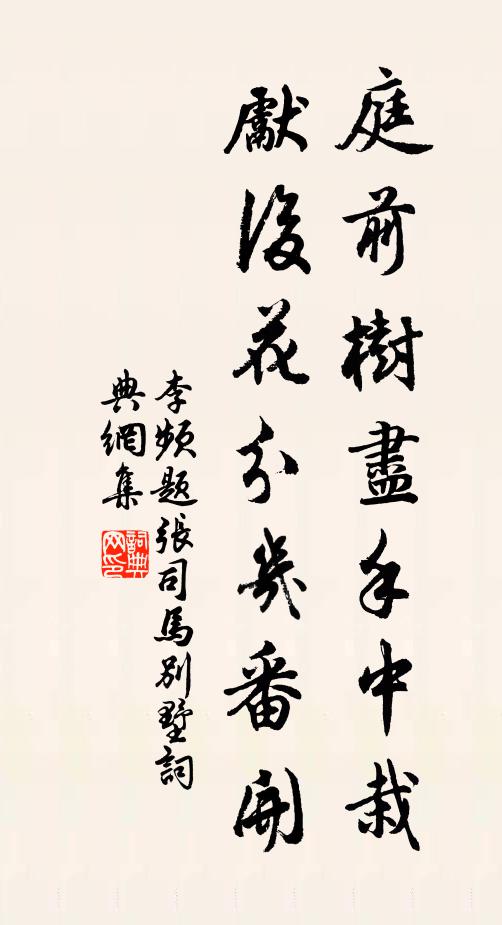 庭前樹盡手中栽
獻後花分幾番開
李頻題張司馬別墅詞
典網集
詞典网印